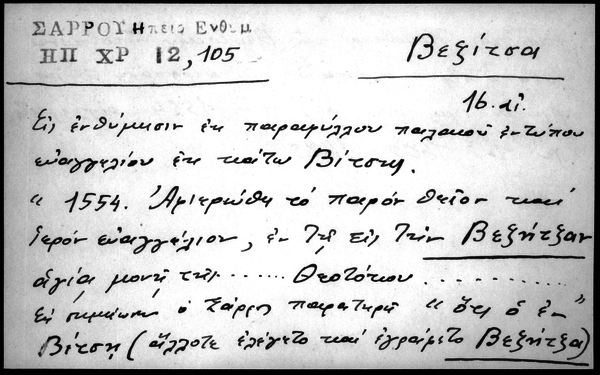 ΣΑΡΡΟΥ Ηπειρ Ενθυμ
ΗΠ ΧΡ 12, 105
Βεζίτσα
16. αἰ.
Εἰς ἐνθύμισιν ἐκ παραφύλλου παλαιοῦ ἐντύπου
εὐαγγελίου ἐκ κάτω Βίτσης.
" 1554. Ἀφιερώθη τό παρόν θεῖον καί
ἱερόν εὐαγγέλιον, ἐν τῇ εἰς τήν Βεζήτζαν
ἁγίᾳ μονῇ τῆς ...... Θεοτόκου ..........
ὁ Σάρρος παρατηρεῖ " ὅτι ὁ ἐν "
Βίτσῃ (ἄλλοτε ἐλέγετο καί ἐγράφετο Βεζήτζα)